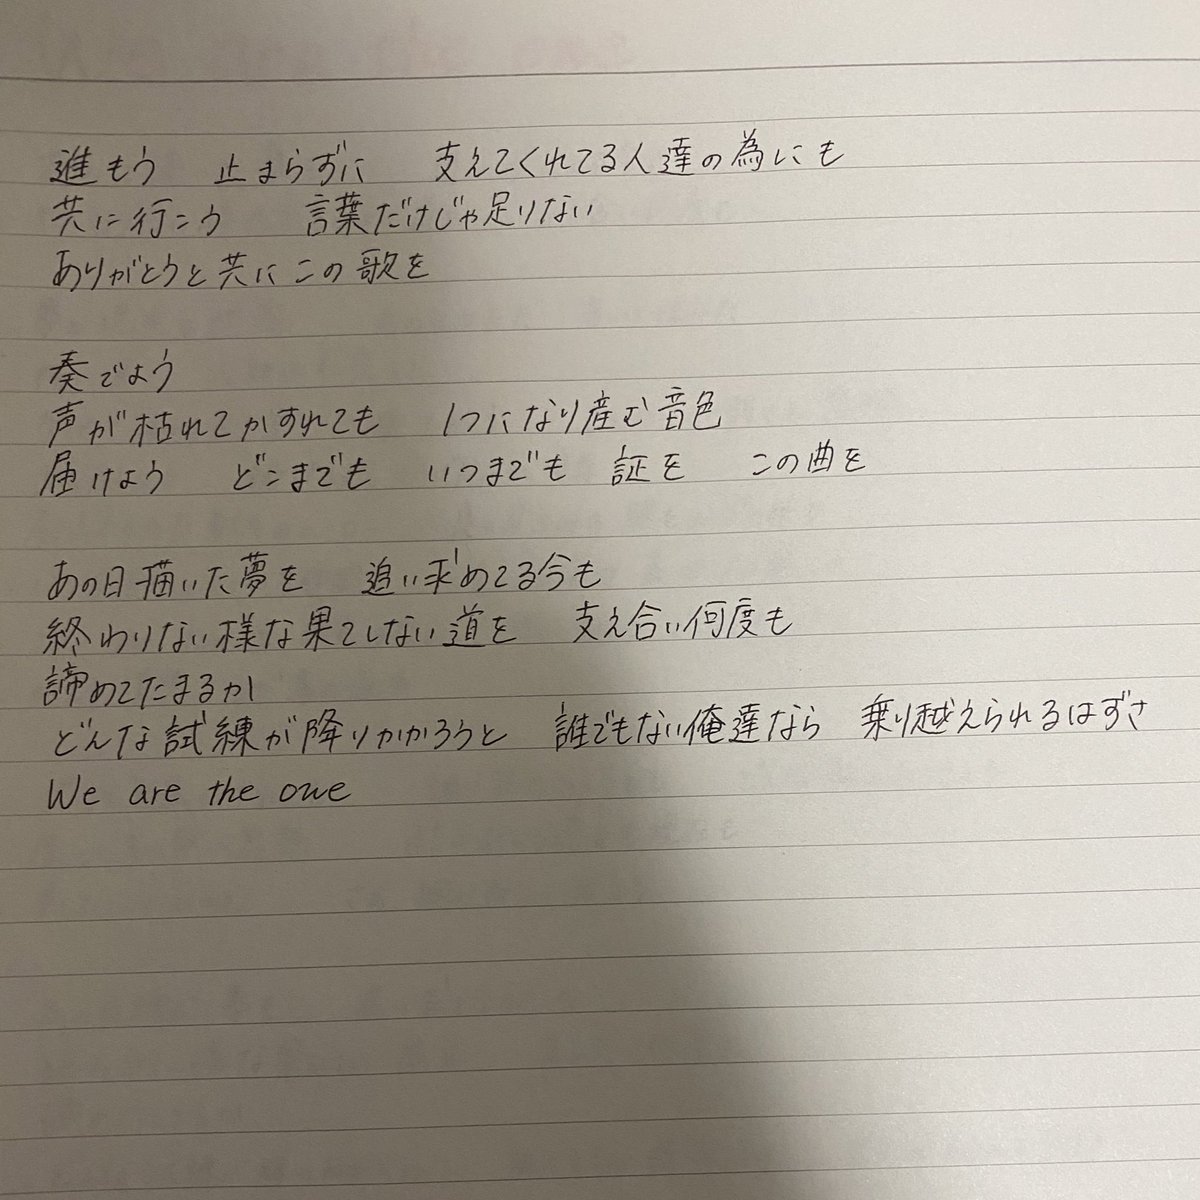 進もう　止まらずに　支えてくれてる人達の為にも
共に行こう　言葉だけじゃ足りない
ありがとうと共にこの歌を
奏でよう
声が枯れてかすれても　1つになり産む音色
届けよう　どこまでも　いつまでも　証を　この曲を
あの日描いた夢を　追い求めてる今も
終わりない様な果てしない道を　支え合い何度も
諦めてたまるか
どんな試練が降りかかろうと　誰でもない俺達なら　乗り越えられるはずさ
We are the one